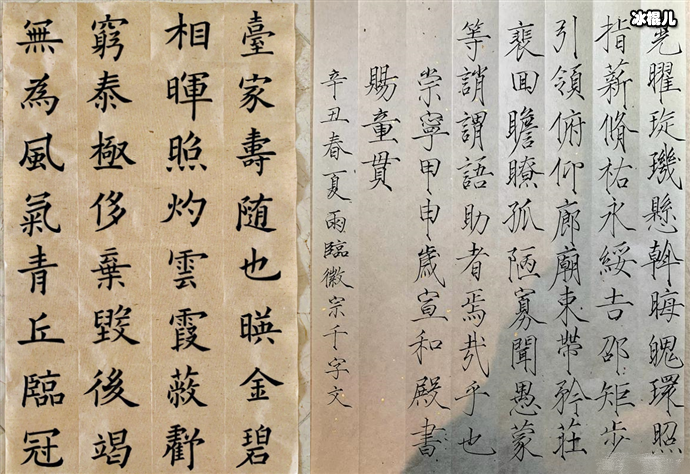 臺家壽随也暎金碧
相暉照灼雲霞蔽虧
窮泰極侈棄毀後竭
無為風氣青丘臨冠
晃曜琁璣懸斡晦魄環照
指薪脩祜永綏吉邵矩步
引領俯仰廊廟束帶矜莊
裵回瞻瞭孤陋寡聞愚蒙
等誚謂語助者焉哉乎也
崇寧甲申歲宣和殿書
賜童貫
辛丑春夏雨臨徽宗千字文
冰棍儿